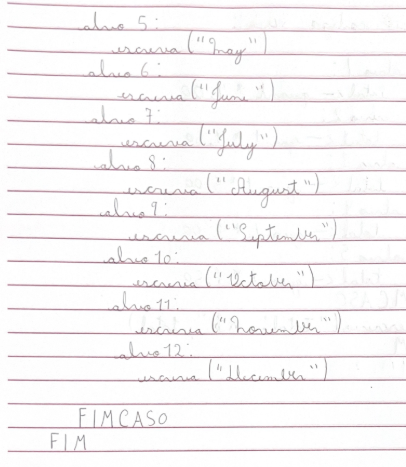 alvo 5:
escreva ("May")
alvo 6:
escreva ("June")
alvo 7:
escreva ("July")
alvo 8:
escreva ("August")
alvo 9:
escreva ("September")
alvo 10:
escreva ("October")
alvo 11:
escreva ("November")
alvo 12:
escreva ("December")
FIMCASO
FIM